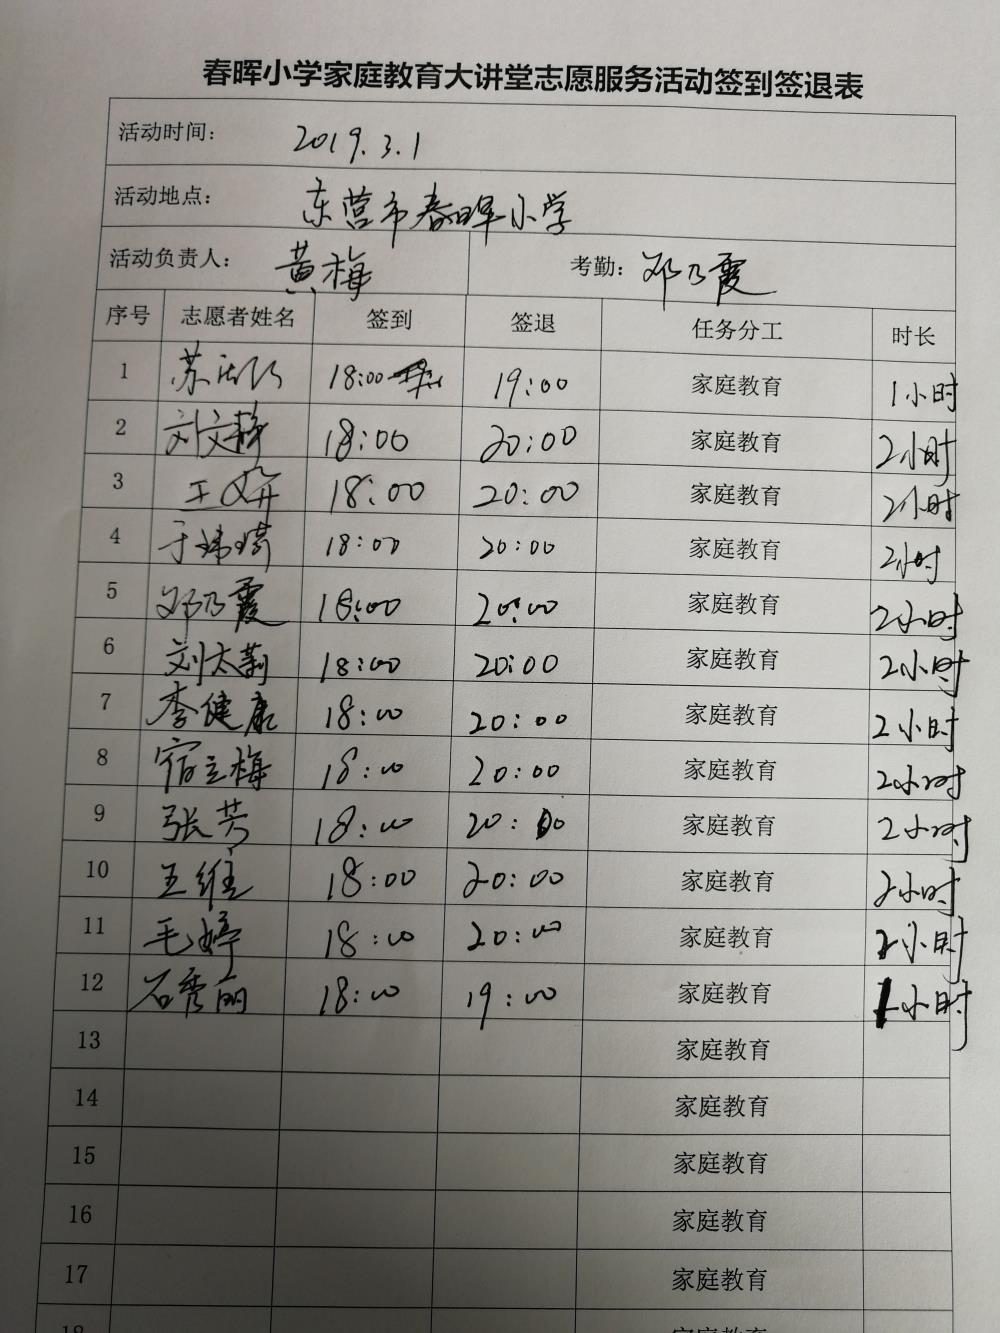 春晖小学家庭教育大讲堂志愿服务活动签到签退表
活动时间： 2019.3.1
活动地点： 东营市春晖小学
活动负责人： 黄梅 考勤： 邓乃霞
序号 志愿者姓名 签到 签退 任务分工 时长
1 苏 18:00 19:00 家庭教育 1小时
2 刘文静 18:00 20:00 家庭教育 2小时
3 王 18:00 20:00 家庭教育 2小时
4 于 18:00 20:00 家庭教育 2小时
5 邓乃霞 18:00 20:00 家庭教育 2小时
6 刘太莉 18:00 20:00 家庭教育 2小时
7 李健康 18:00 20:00 家庭教育 2小时
8 宿立梅 18:00 20:00 家庭教育 2小时
9 张芳 18:00 20:00 家庭教育 2小时
10 王维 18:00 20:00 家庭教育 2小时
11 毛婷 18:00 20:00 家庭教育 2小时
12 石秀丽 18:00 19:00 家庭教育 1小时
13 家庭教育
14 家庭教育
15 家庭教育
16 家庭教育
17 家庭教育
18 家庭教育